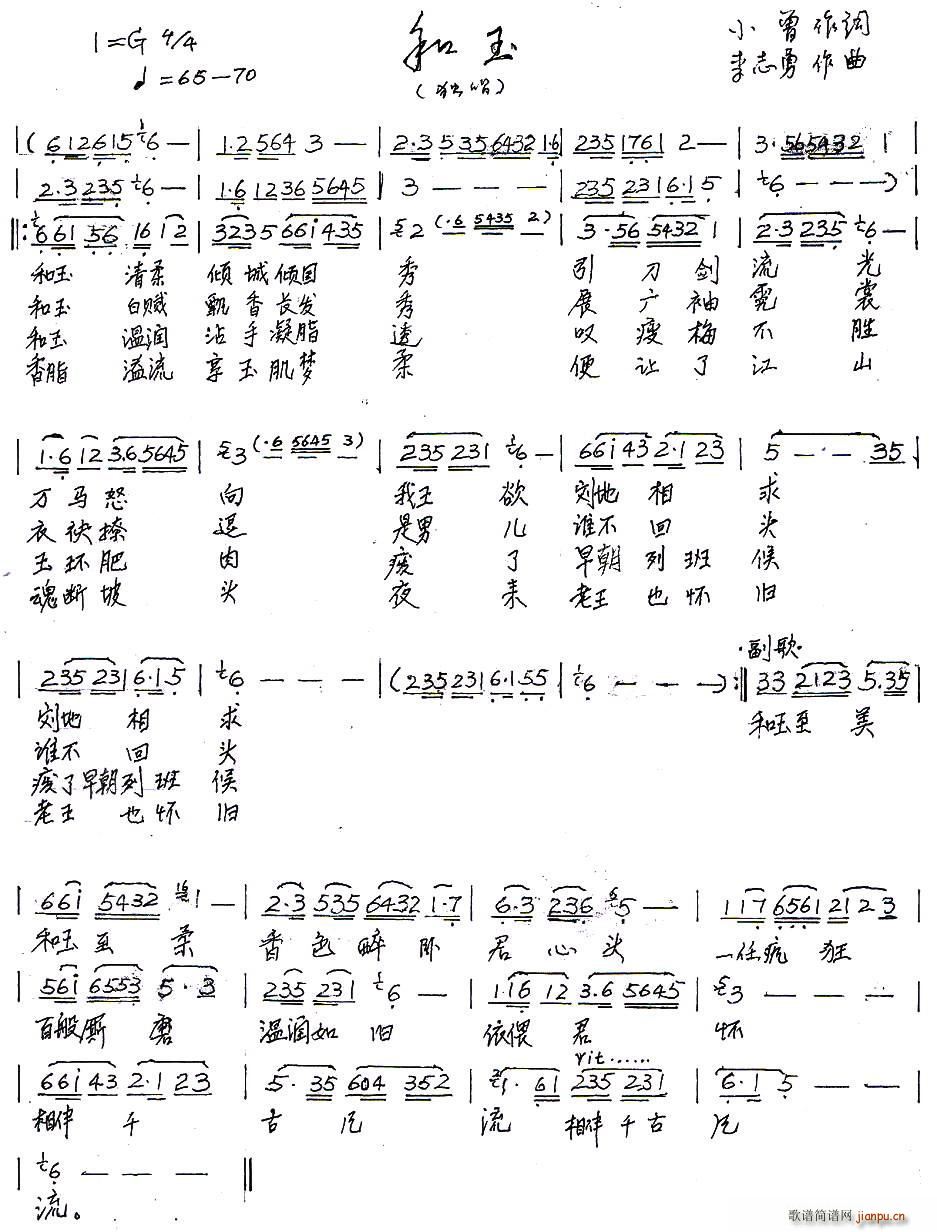 1=G 4/4
♩=65—70
和玉
(独唱)
小曾作词
李志勇作曲
( 612615 6 — | 1·2 564 3 — | 2·3 535 6432 1·6 | 235 1761 2 — | 3·565432 1 |
2·3 235 6 — | 1·6 1236 5645 | 3 — — — | 235 231 6·1 5 | 6 — — — )
‖: 661 56 16 12 | 3235 661 435 | 2 (·6 5435 2) | 3·56 5432 1 | 2·3 235 6 — |
和玉 清柔 倾城倾国 秀 引刀剑流光
和玉 白贼 飘香长发 秀 展广袖霓裳
和玉 温润 沾手凝脂 透 叹瘦梅不胜
香脂 溢流 享玉肌梦 柔 便让了江山
1·6 12 3·6 5645 | 3 (·6 5645 3) | 235 231 6 — | 661 43 2·1 23 | 5 — — 35 |
万马怒 向 我王 欲 刻地相 求
衣袂撩 退 是男 儿 谁不回 头
玉环肥 肉 疲 了 早朝列班 候
魂断坡 头 夜 来 老王也怀 旧
| 235 231 6·1 5 | 6 — — — | (235 231 6·1 55 | 6 — — — ) :‖
·副歌·
33 2123 5·35 |
刻地 相 求 和玉至 美
谁不 回 头
疲了早朝列班 候
老王 也怀 旧
| 661 5432 1 — | 2·3 535 6432 1·7 | 6·3 236 5 — | 117 6561 212 3 |
和玉至 柔 香色醉卧 君心头 一任疯狂
| 561 6553 5·3 | 235 231 6 — | 1·16 12 3·6 5645 | 3 — — — |
百般厮 磨 温润如 旧 依偎君 怀
rit……
| 661 43 2·1 23 | 5·35 604 352 | 1·61 235 231 | 6·1 5 — — |
相伴 千 古 流 相伴千古
| 6 — — — ‖
流。
歌谱简谱网
jianpu.cn